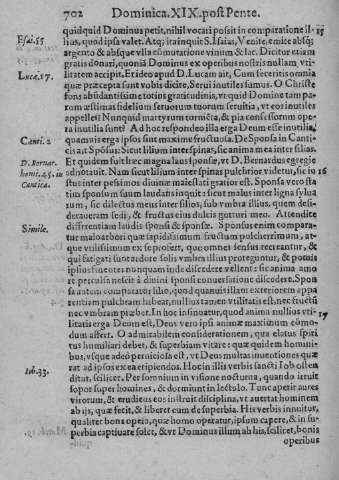 702 Dominica. XIX. post Pente.
quidquid Dominus petit, nihil vocati possit in comparatione il- 15
Esai. 55 lius, quod ipsa valet. Atq; ita inquit S. Isaias, Venite, emite absq;
argento & absque vlla cõmutatione vinum & lac. Dicitur etiam
gratis donari, quoniã Dominus ex operibus nostris nullam vti-
Luca. 17. litatem accipit. Et ideo apud D. Lucam ait, Cum feceritis omnia
quæ præcepta sunt vobis dicite, Serui inutiles sumus. O Christe
fons abũdantissime totius gratitudinis, quid est Domine tam pa-
rum æstimas fidelium seruorum tuorum seruitia, vt eos inutiles
appelles? Nunquid martyrum tormẽta, & pia confessorum ope-
ra inutilia sunt? Ad hoc respondeo illa erga Deum esse inutilia,
Canti. 2 quamuis erga ipsos sunt maxime fructuosa. De Sponsa in Canti-
cis ait Spõsus: Sicut lilium inter spinas, sic anima mea inter filias.
D. Bernar. Et quidem fuit hæc magna laus sponsæ, vt D. Bernardus egregie
homi. 45. in adnotauit. Nam sicut lilium inter spinas pulchrior videtur, sic iu- 16
Cantica. stus inter pessimos diuinæ maiestati gratior est. Sponsa vero sta-
tim sponsum suum laudans inquit: sicut malus inter ligna sylua
rum, sic dilectus meus inter filios, sub vmbra illius, quem desi-
deraueram sedi, & fructus eius dulcis gutturi meo. Attendite
Simile. differentiam laudis sponsi & sponsæ. Sponsus enim compara-
tur malo arbori quæ sapidissimum fructum pulcherrimum, at-
que vtilissimum ex se profert, quo omnes sensus recreantur, &
qui fatigati sunt ardore solis vmbra illius proteguntur, & pomis
ipsius fruentes nunquam inde discedere vellent: sic anima amo
re perculsa nescit à diuini sponsi conuersatione discedere. Spon
sa autem comparatur lilio, quod quamuis illam exteriorem appa
rentiam pulchram habeat, nullius tamen vtilitatis est, nec fructũ
nec vmbram præbet. In hoc insinuatur, quod anima nullius vti- 17
litatis erga Deum est, Deus vero ipsi animæ maximum cõmo-
dum affert. O admirabilem considerationem, qua elatus spiri
tus humiliari debet, & superbiam vitare: quæ quidem homini-
bus, vsque adeo perniciosa est, vt Deus multas inuentiones quæ
rat ad ipsos ex ea eripiendos. Hoc in illis verbis sancti Iob osten
Iob. 33. ditur, scilicet. Per somnium in visione nocturna, quando irruit
sopor super homines, & dormiunt in lectulo. Tunc aperit aures
virorum, & erudiens eos instruit disciplina, vt auertat hominem
ab ijs, quæ fecit, & liberet eum de superbia. His verbis innuitur,
qualiter bonis optio, quæ homo operatur, ipsum capere, & in su-
perbia captiuare solet, & vt Dominus illum ab his, scilicet, bonis
operibus